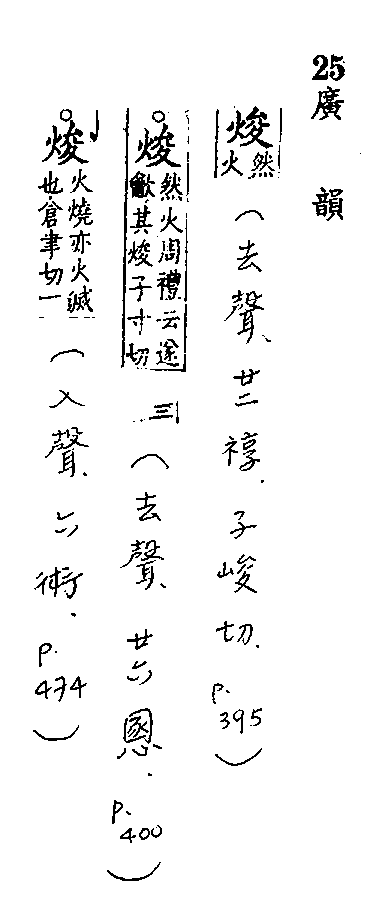 25廣韻
焌然火(去聲、廿二稕.子峻切.p.395)
焌然火周禮云遂龡其焌子寸切三(去聲、廿六慁.p.400)
焌火燒亦火滅也倉聿切一(入聲.六術.p.474)